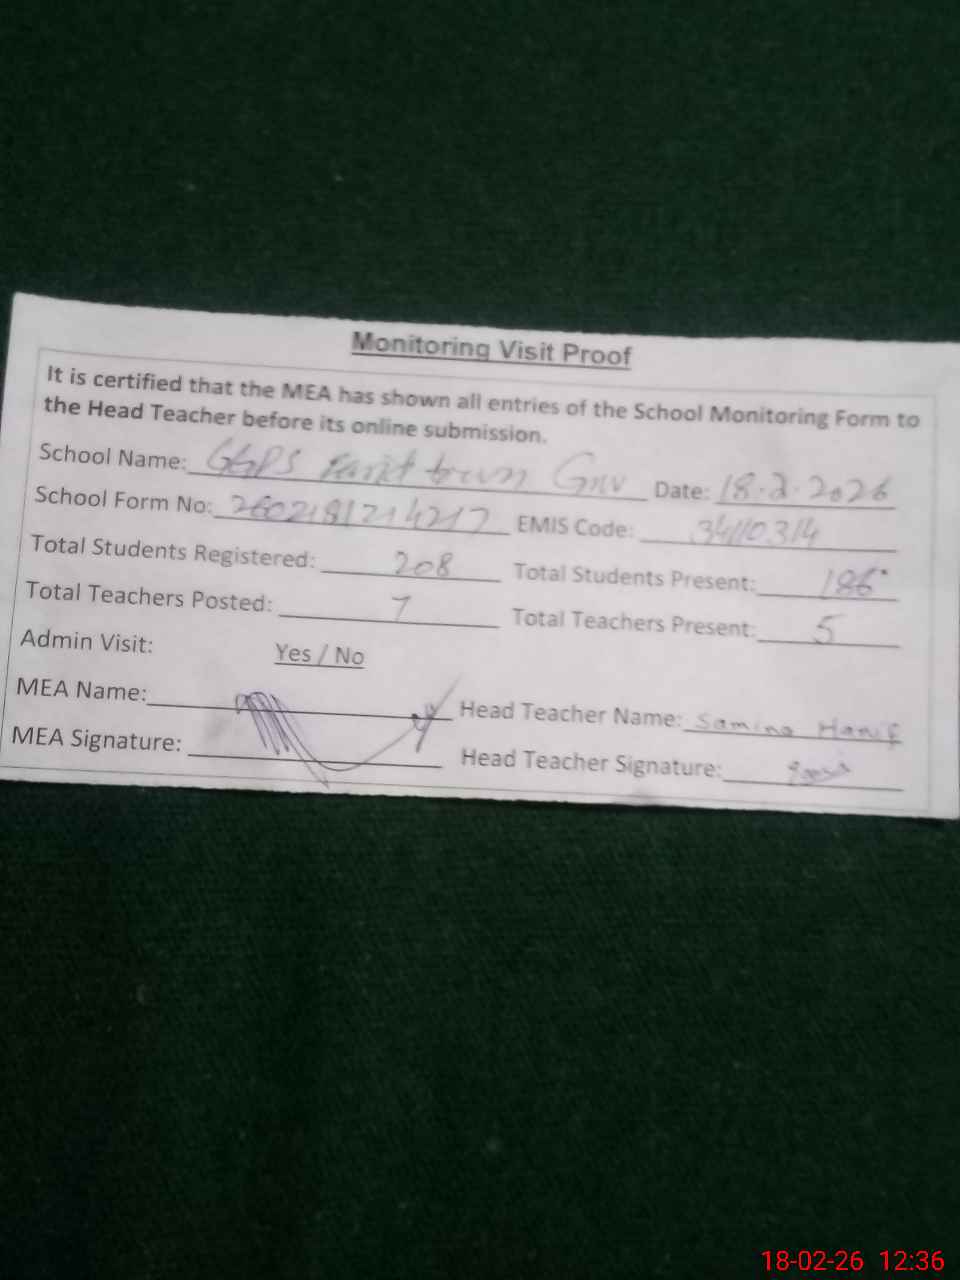 Monitoring Visit Proof
It is certified that the MEA has shown all entries of the School Monitoring Form to
the Head Teacher before its online submission.
School Name: GGPS town Date: 18.2.2026
School Form No: 2602181214217 EMIS Code: 34110314
Total Students Registered: 208 Total Students Present: 186
Total Teachers Posted: 7 Total Teachers Present: 5
Admin Visit: Yes / No
MEA Name: Head Teacher Name: Samina Hanif
MEA Signature: Head Teacher Signature:
18-02-26 12:36